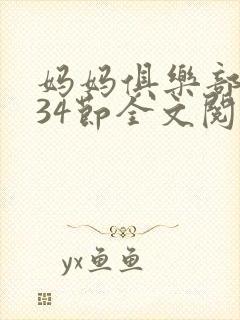 妈妈俱乐部
34节全文阅
yx鱼鱼